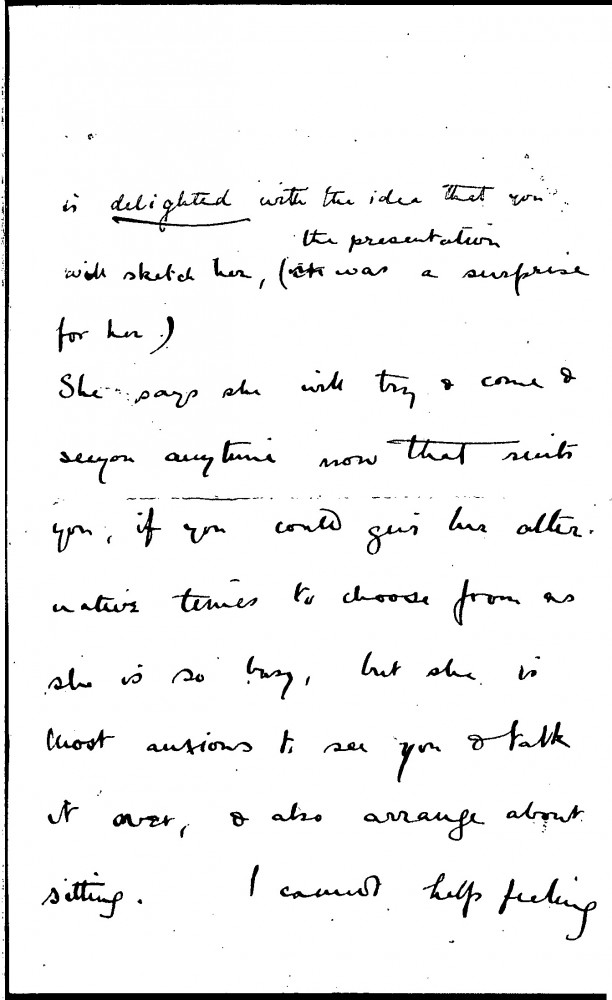 is delighted with the idea that you
the presentation
will sketch her, (it was a surprise
for her)
She says she will try & come &
see you anytime now that suits
you, if you could give her alter-
native times to choose from as
she is so busy, but she is
most anxious to see you & talk
it over, & also arrange about
sitting. I cannot help feeling